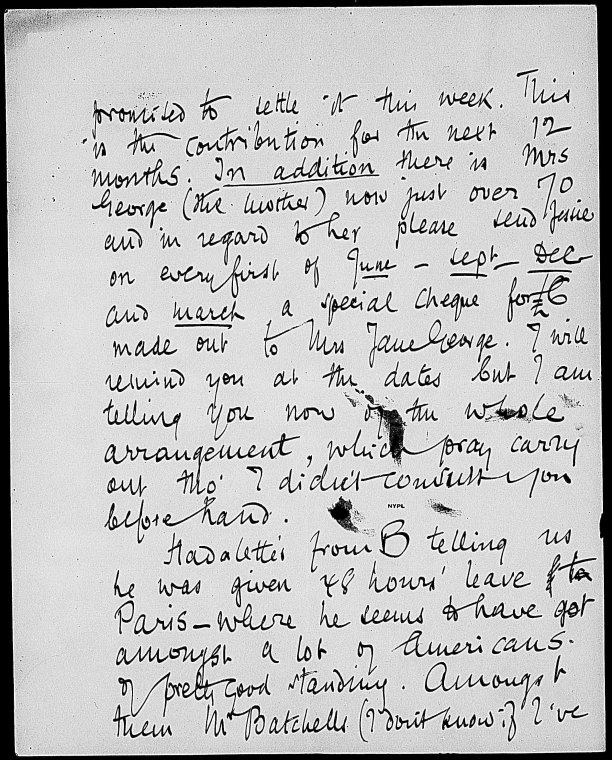 promised to settle it this week. This
is the contribution for the next 12
months. In addition there is Mrs
George (the mother) now just over 70
and in regard to her please send Jessie
on every first of June - Sept - Dec
and March a special cheque for £6
made out to Mrs Jane George. I will
remind you at the dates but I am
telling you now of the whole
arrangement, which pray carry
out tho' I didn't consult you
before hand.
NYPL
Had a letter from B telling us
he was given 48 hours' leave to
Paris - where he seems to have got
amongst a lot of Americans.
of pretty good standing. Amongst
them Mr Batchells (I don't know if I've